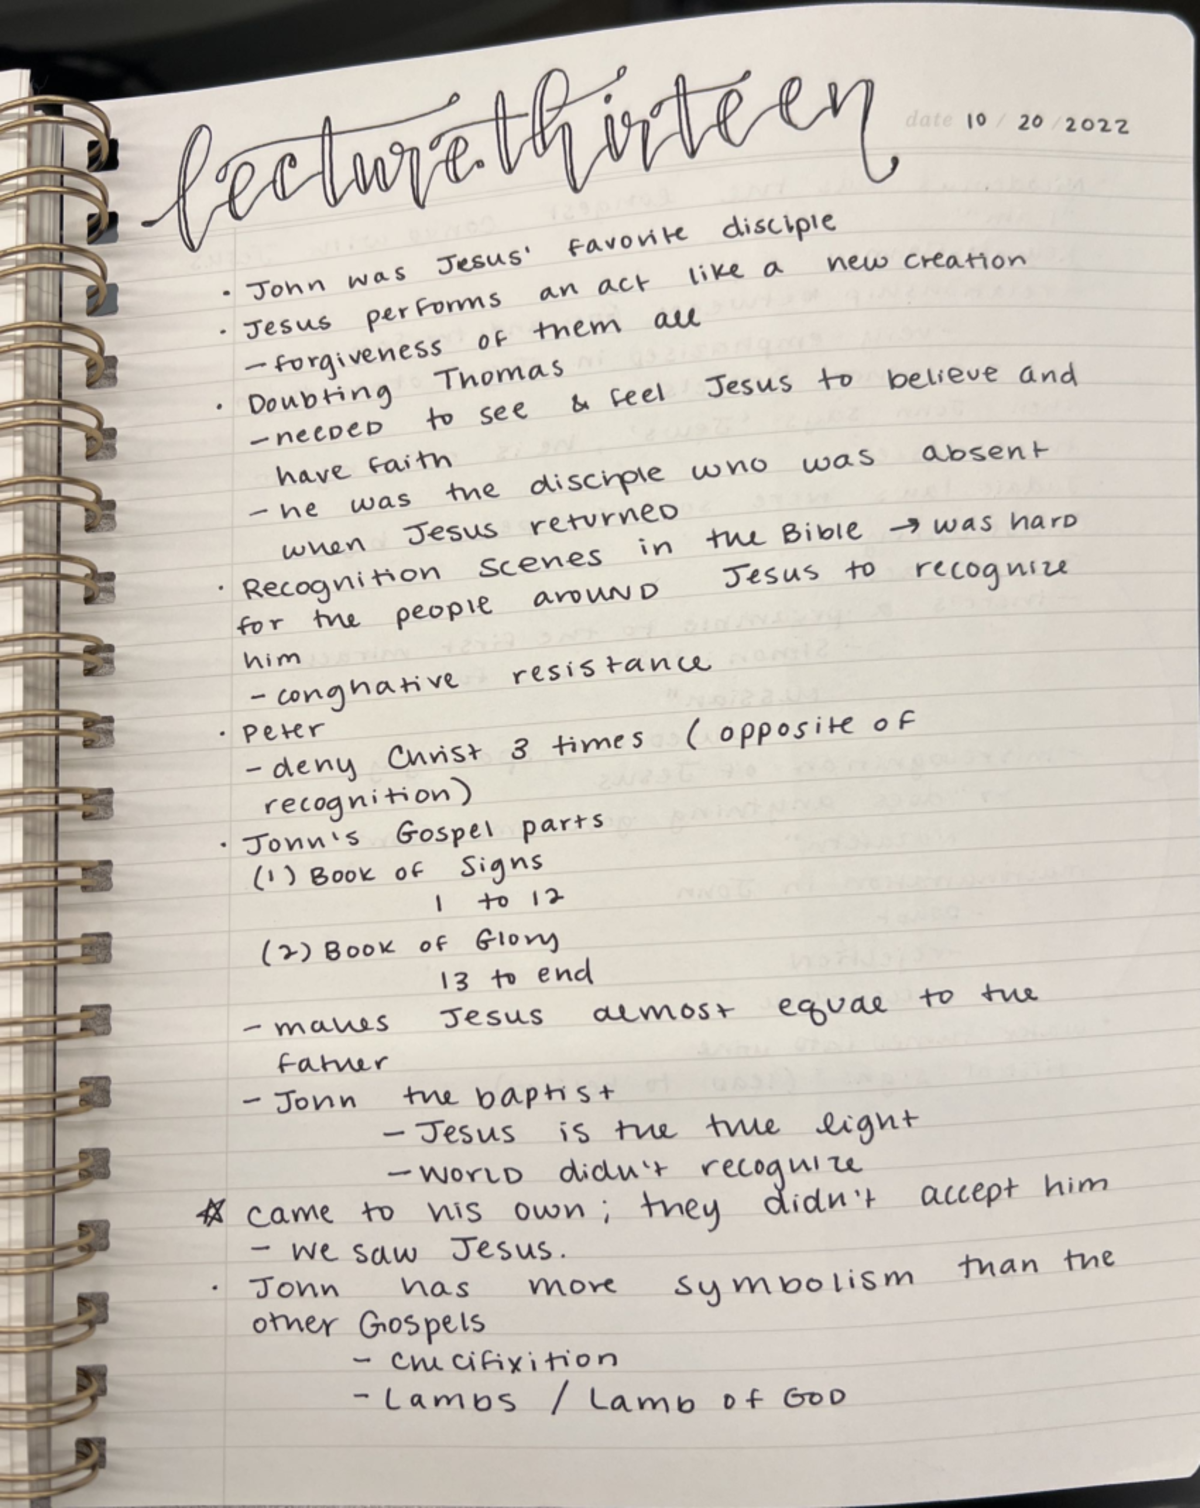 lecture.thirteen
date 10 / 20 / 2022
· John was Jesus' favorite disciple
· Jesus performs an act like a new creation
- forgiveness of them all
· Doubting Thomas
- needed to see & feel Jesus to believe and
have faith
- he was the disciple who was absent
when Jesus returned
· Recognition scenes in the Bible → was hard
for the people around Jesus to recognize
him
- conghative resistance
· Peter
- deny Christ 3 times (opposite of
recognition)
· John's Gospel parts
(1) Book of Signs
1 to 12
(2) Book of Glory
13 to end
- makes Jesus almost equal to the
father
- John the baptist
- Jesus is the true light
- World didn't recognize
☆ came to his own; they didn't accept him
- we saw Jesus.
· John has more symbolism than the
other Gospels
- crucifixition
- Lambs / Lamb of GOD